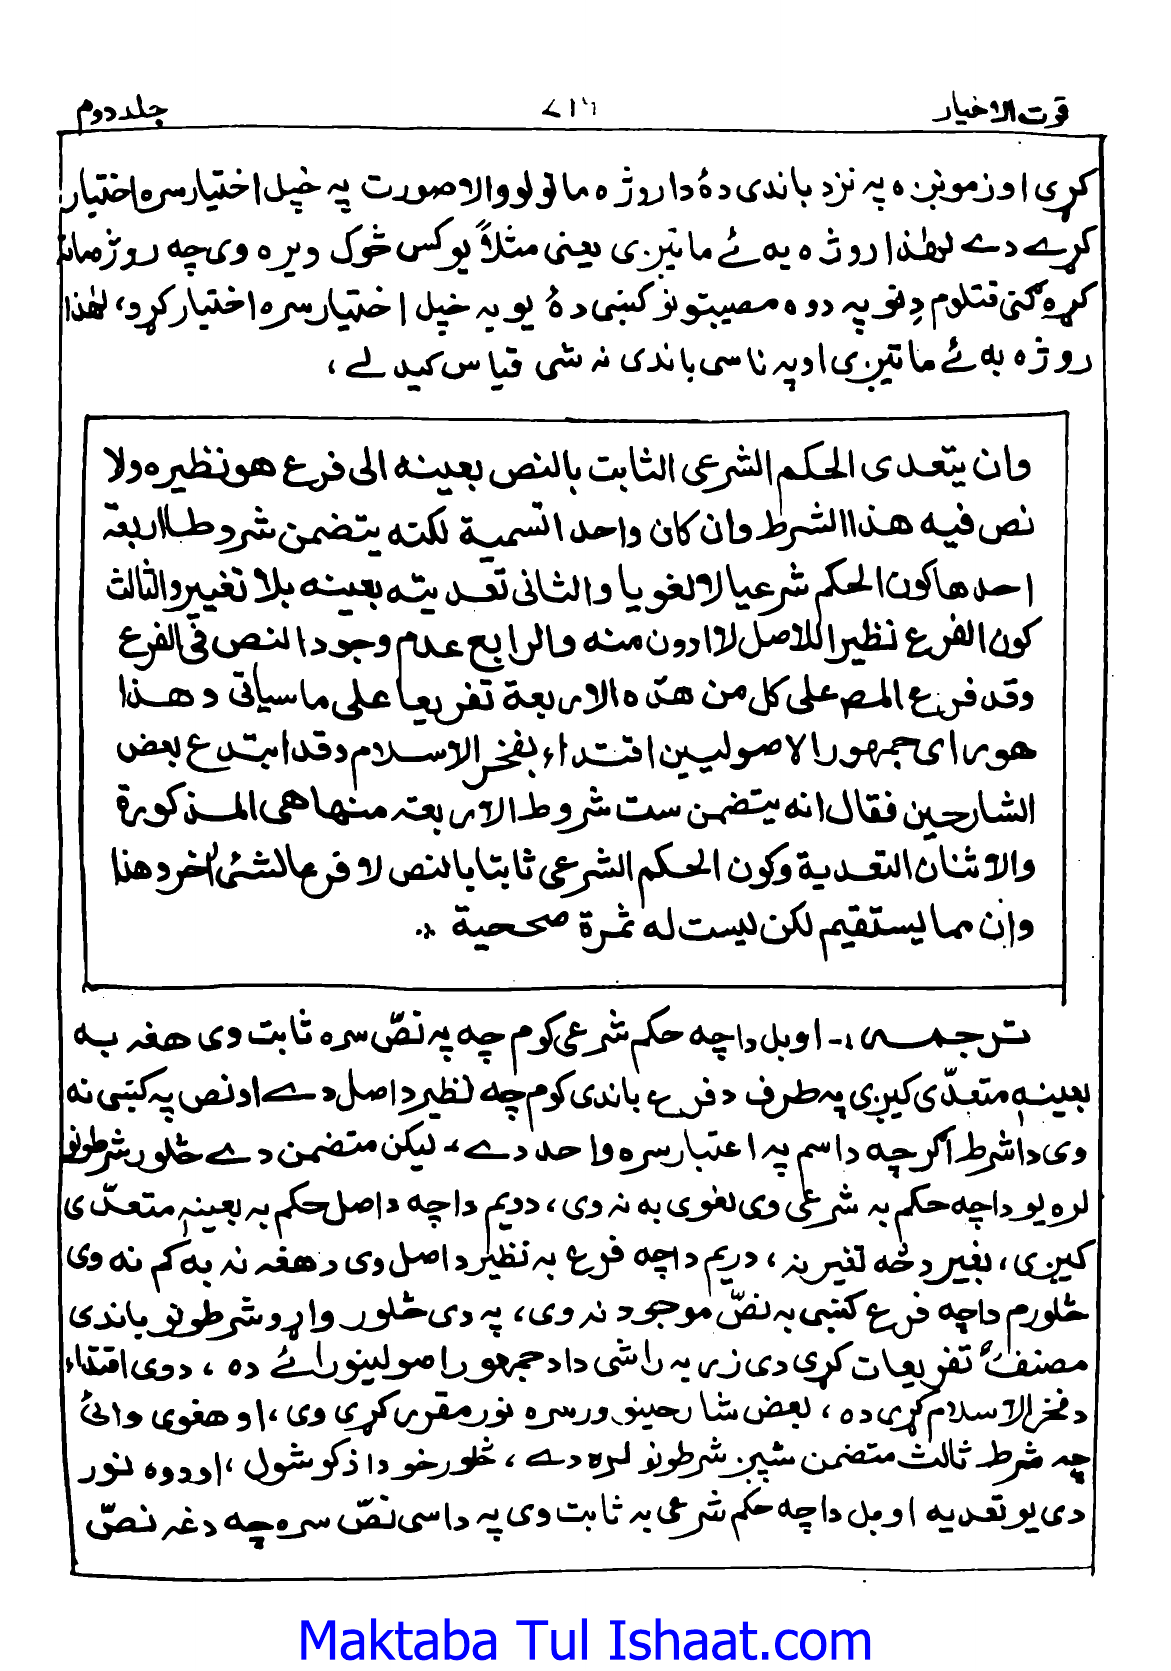 قوت الاخیار ۷۱۶ جلد دوم
کړی او زمونږه په نزد باندی دهٔ دا روژه ماتولو والا صورت په خپل اختیار سره اختیار
کړے دے لهٰذا روژه به ئے ماتیږی یعنی مثلاً یو کس څوک ویره وی چه روژه ماته
کړه گنی قتلوم دِ نو په دوه مصیبتونو کښی دهٔ یو په خپل اختیار سره اختیار کړو، لهٰذا
روژه به ئے ماتیږی او په ناسی باندی نه شی قیاس کیدلے ،
وان یتعدی الحکم الشرعی الثابت بالنص بعینه الی فرع هو نظیره ولا
نص فیه هذا الشرط وان کان واحدا تسمیة لکنه یتضمن شروطا اربعة
احدها کون الحکم شرعیا لا لغویا والثانی تعدیته بعینه بلا تغییر والثالث
کون الفرع نظیرا للاصل لا ادون منه والرابع عدم وجود النص فی الفرع
وقد فرع المص علی کل من هذه الاربعة تفریعا علی ما سیاتی وهذا
هو رای جمهور الاصولیین اقتداء بفخر الاسلام وقد ابتدع بعض
الشارحین فقال انه یتضمن ست شروط الاربعة منها هی المذکورة
والاثنان التعدیة وکون الحکم الشرعی ثابتا بالنص لا فرعا لشئ اٰخر وهذا
وان مما یستقیم لکن لیست له ثمرة صحیحة ..
ترجمه :- او بل دا چه حکم شرعی کوم چه په نصّ سره ثابت وی هغه به
بعینهٖ متعدّی کیږی په طرف د فرع باندی کوم چه نظیر د اصل دے او نص په کښی نه
وی دا شرط اگرچه د اسم په اعتبار سره واحد دے، لیکن متضمن دے څلور شرطونو
لره یو دا چه حکم به شرعی وی لغوی به نه وی، دویم دا چه د اصل حکم به بعینهٖ متعدّی
کیږی، بغیر د څه تغیر نه، دریم دا چه فرع به نظیر د اصل وی د هغه نه به کم نه وی
څلورم دا چه فرع کښی به نصّ موجود نه وی، په دی څلور واړو شرطونو باندی
مصنفؒ تفریعات کړی دی زر به راشی دا د جمهور اصولیینو رائے ده ، دوی اقتداء
د فخر الاسلام کړی ده ، بعض شارحینو ورسره نور مقرر کړی وی ،او هغوی وائی
چه شرط ثالث متضمن شپږ شرطونو لره دے ، څلور خو دا ذکر شول ،او دوه نور
دی یو تعدیه او بل دا چه حکم شرعی به ثابت وی په داسی نصّ سره چه دغه نصّ
Maktaba Tul Ishaat.com